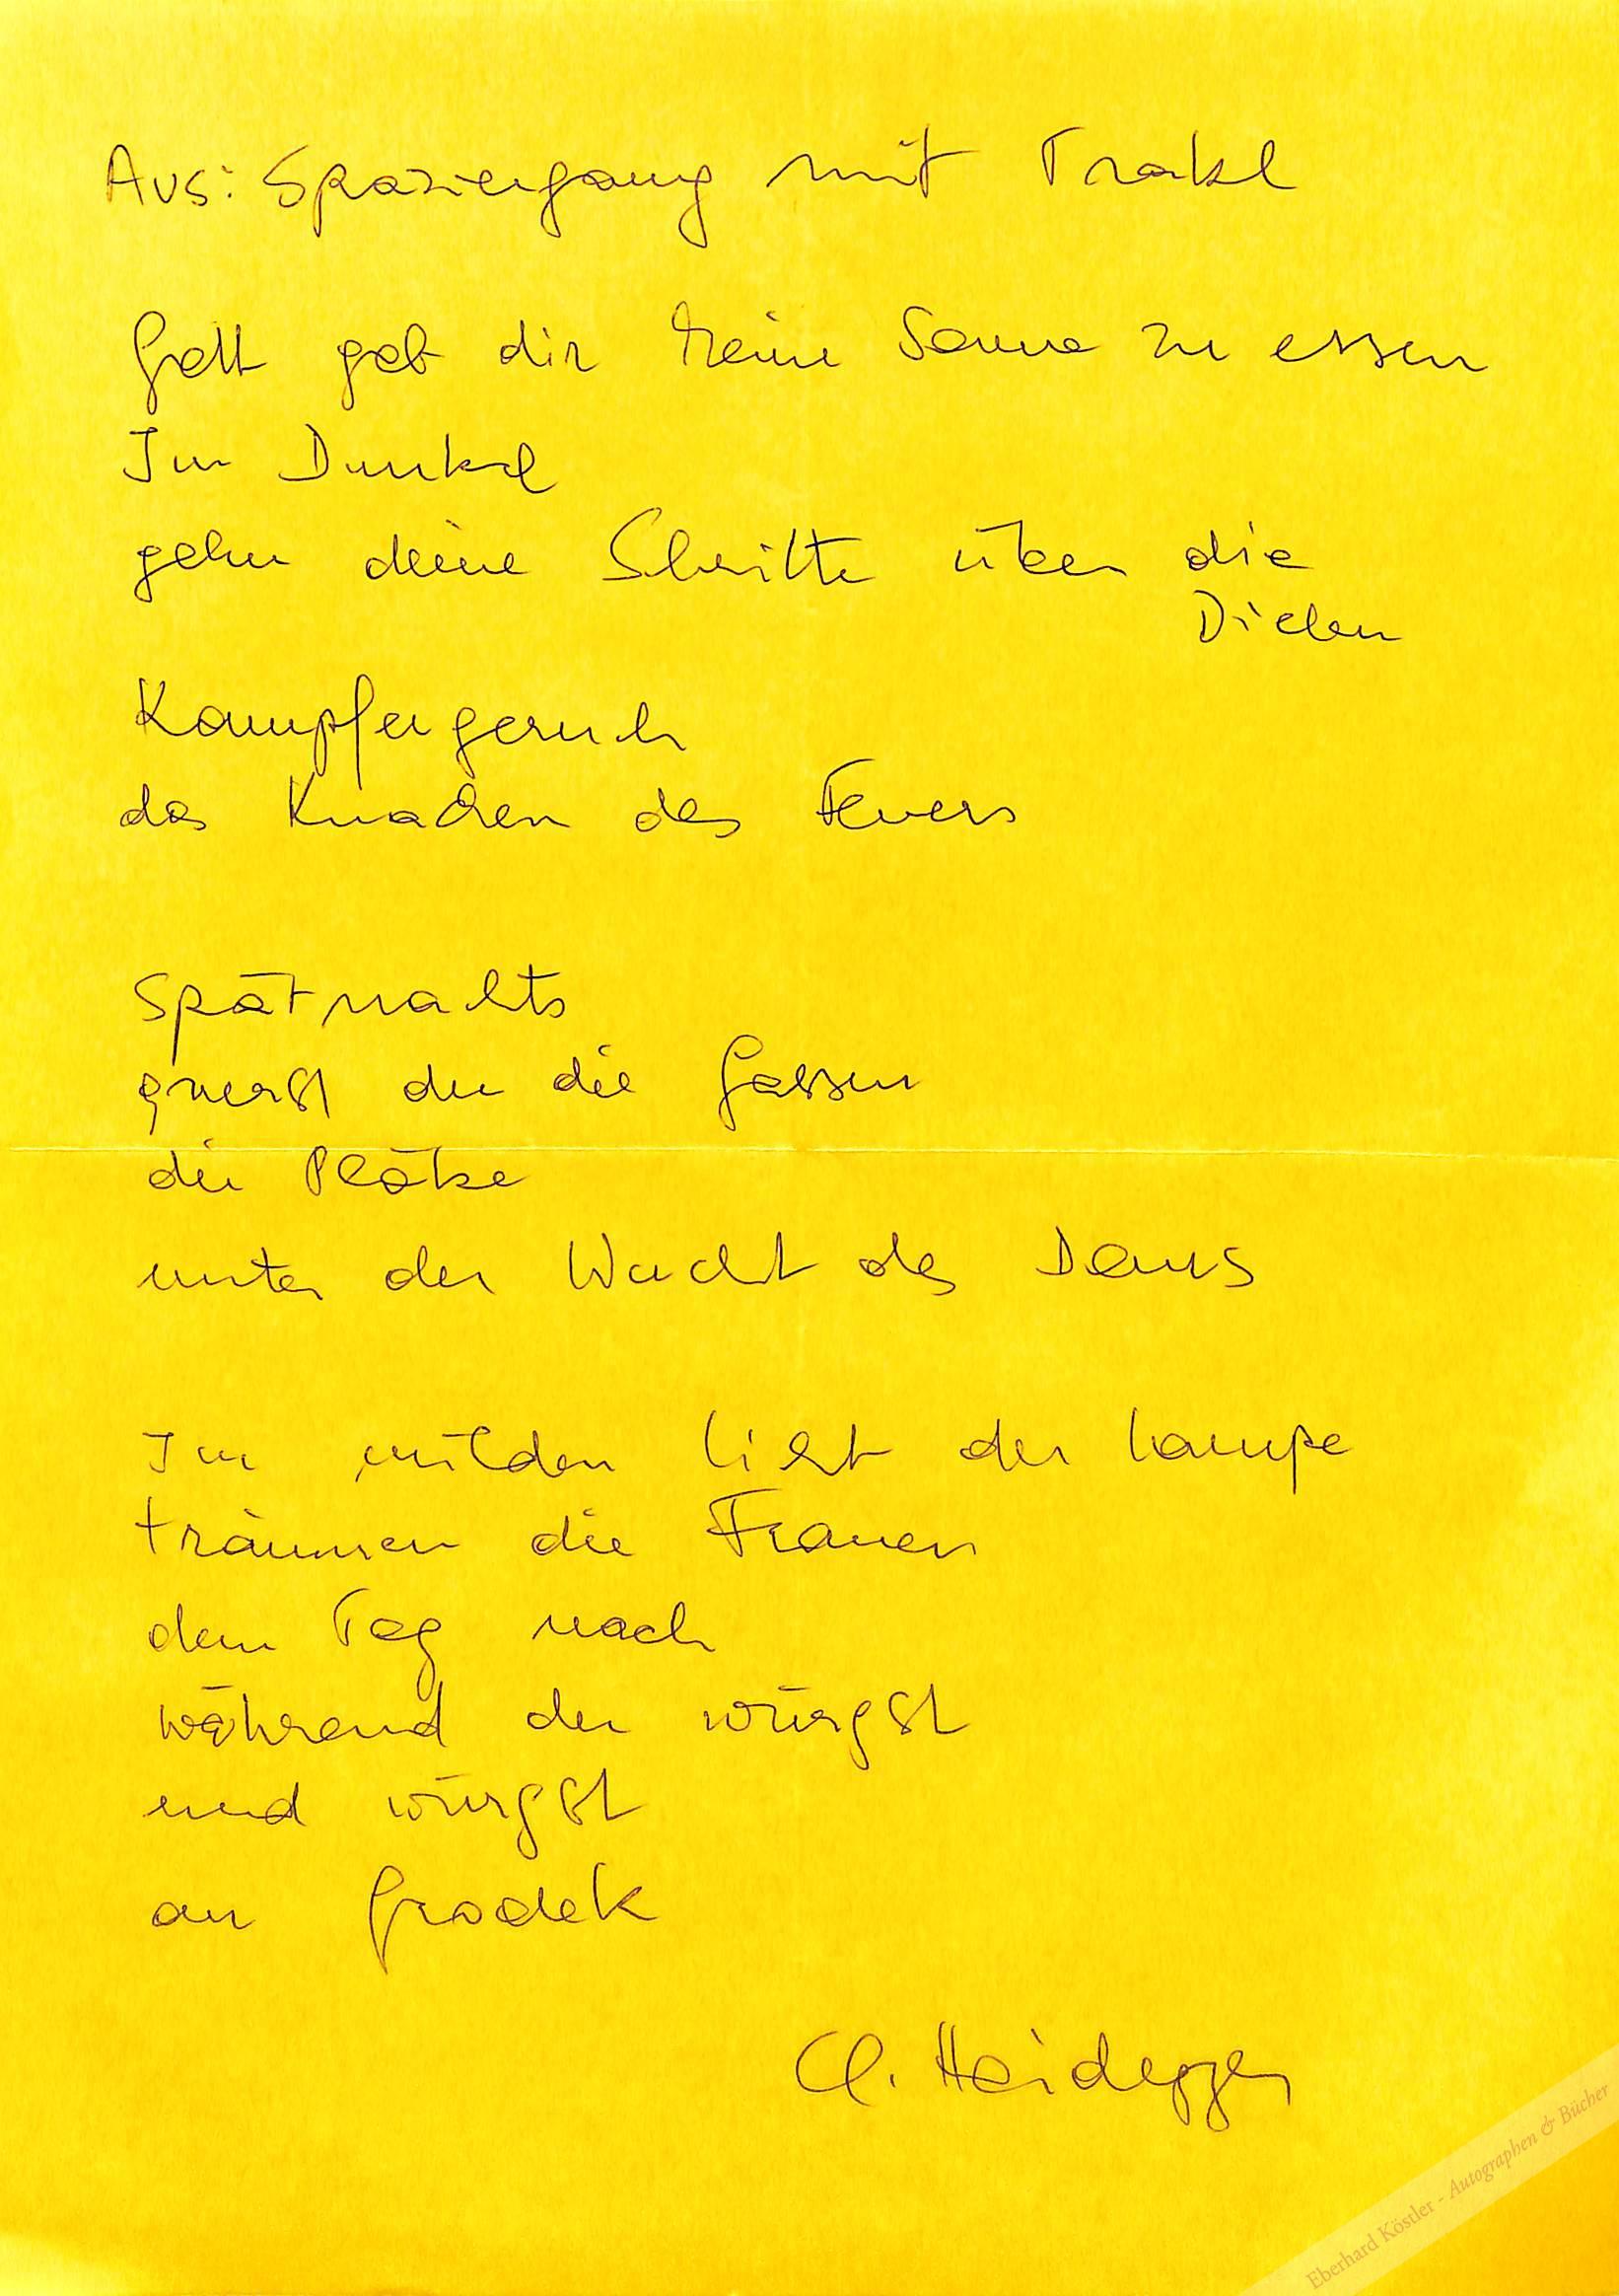 Aus: Spaziergang mit Trakl
Gott gab dir keine Sonne zu essen
Im Dunkel
gehn deine Schritte über die
Dielen
Kampfergeruch
das Knacken des Feuers
Spätnachts
querst du die Gassen
die Plätze
unter der Wucht des Doms
Im milden Licht der Lampe
träumen die Frauen
dem Tag nach
während du würgst
und würgst
an Grodek
Cl. Heidegger
Eberhard Köstler - Autographen & Bücher